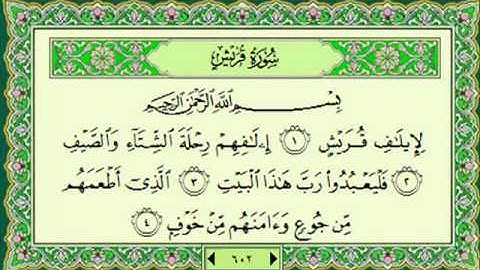 سُورَةُ قُرَيْشٍ
بِسْمِ اللَّهِ الرَّحْمَٰنِ الرَّحِيمِ
لِإِيلَٰفِ قُرَيْشٍ ١ إِۦلَٰفِهِمْ رِحْلَةَ ٱلشِّتَآءِ وَٱلصَّيْفِ
٢ فَلْيَعْبُدُوا۟ رَبَّ هَٰذَا ٱلْبَيْتِ ٣ ٱلَّذِىٓ أَطْعَمَهُم
مِّن جُوعٍ وَءَامَنَهُم مِّنْ خَوْفٍۭ ٤
٦٠٢